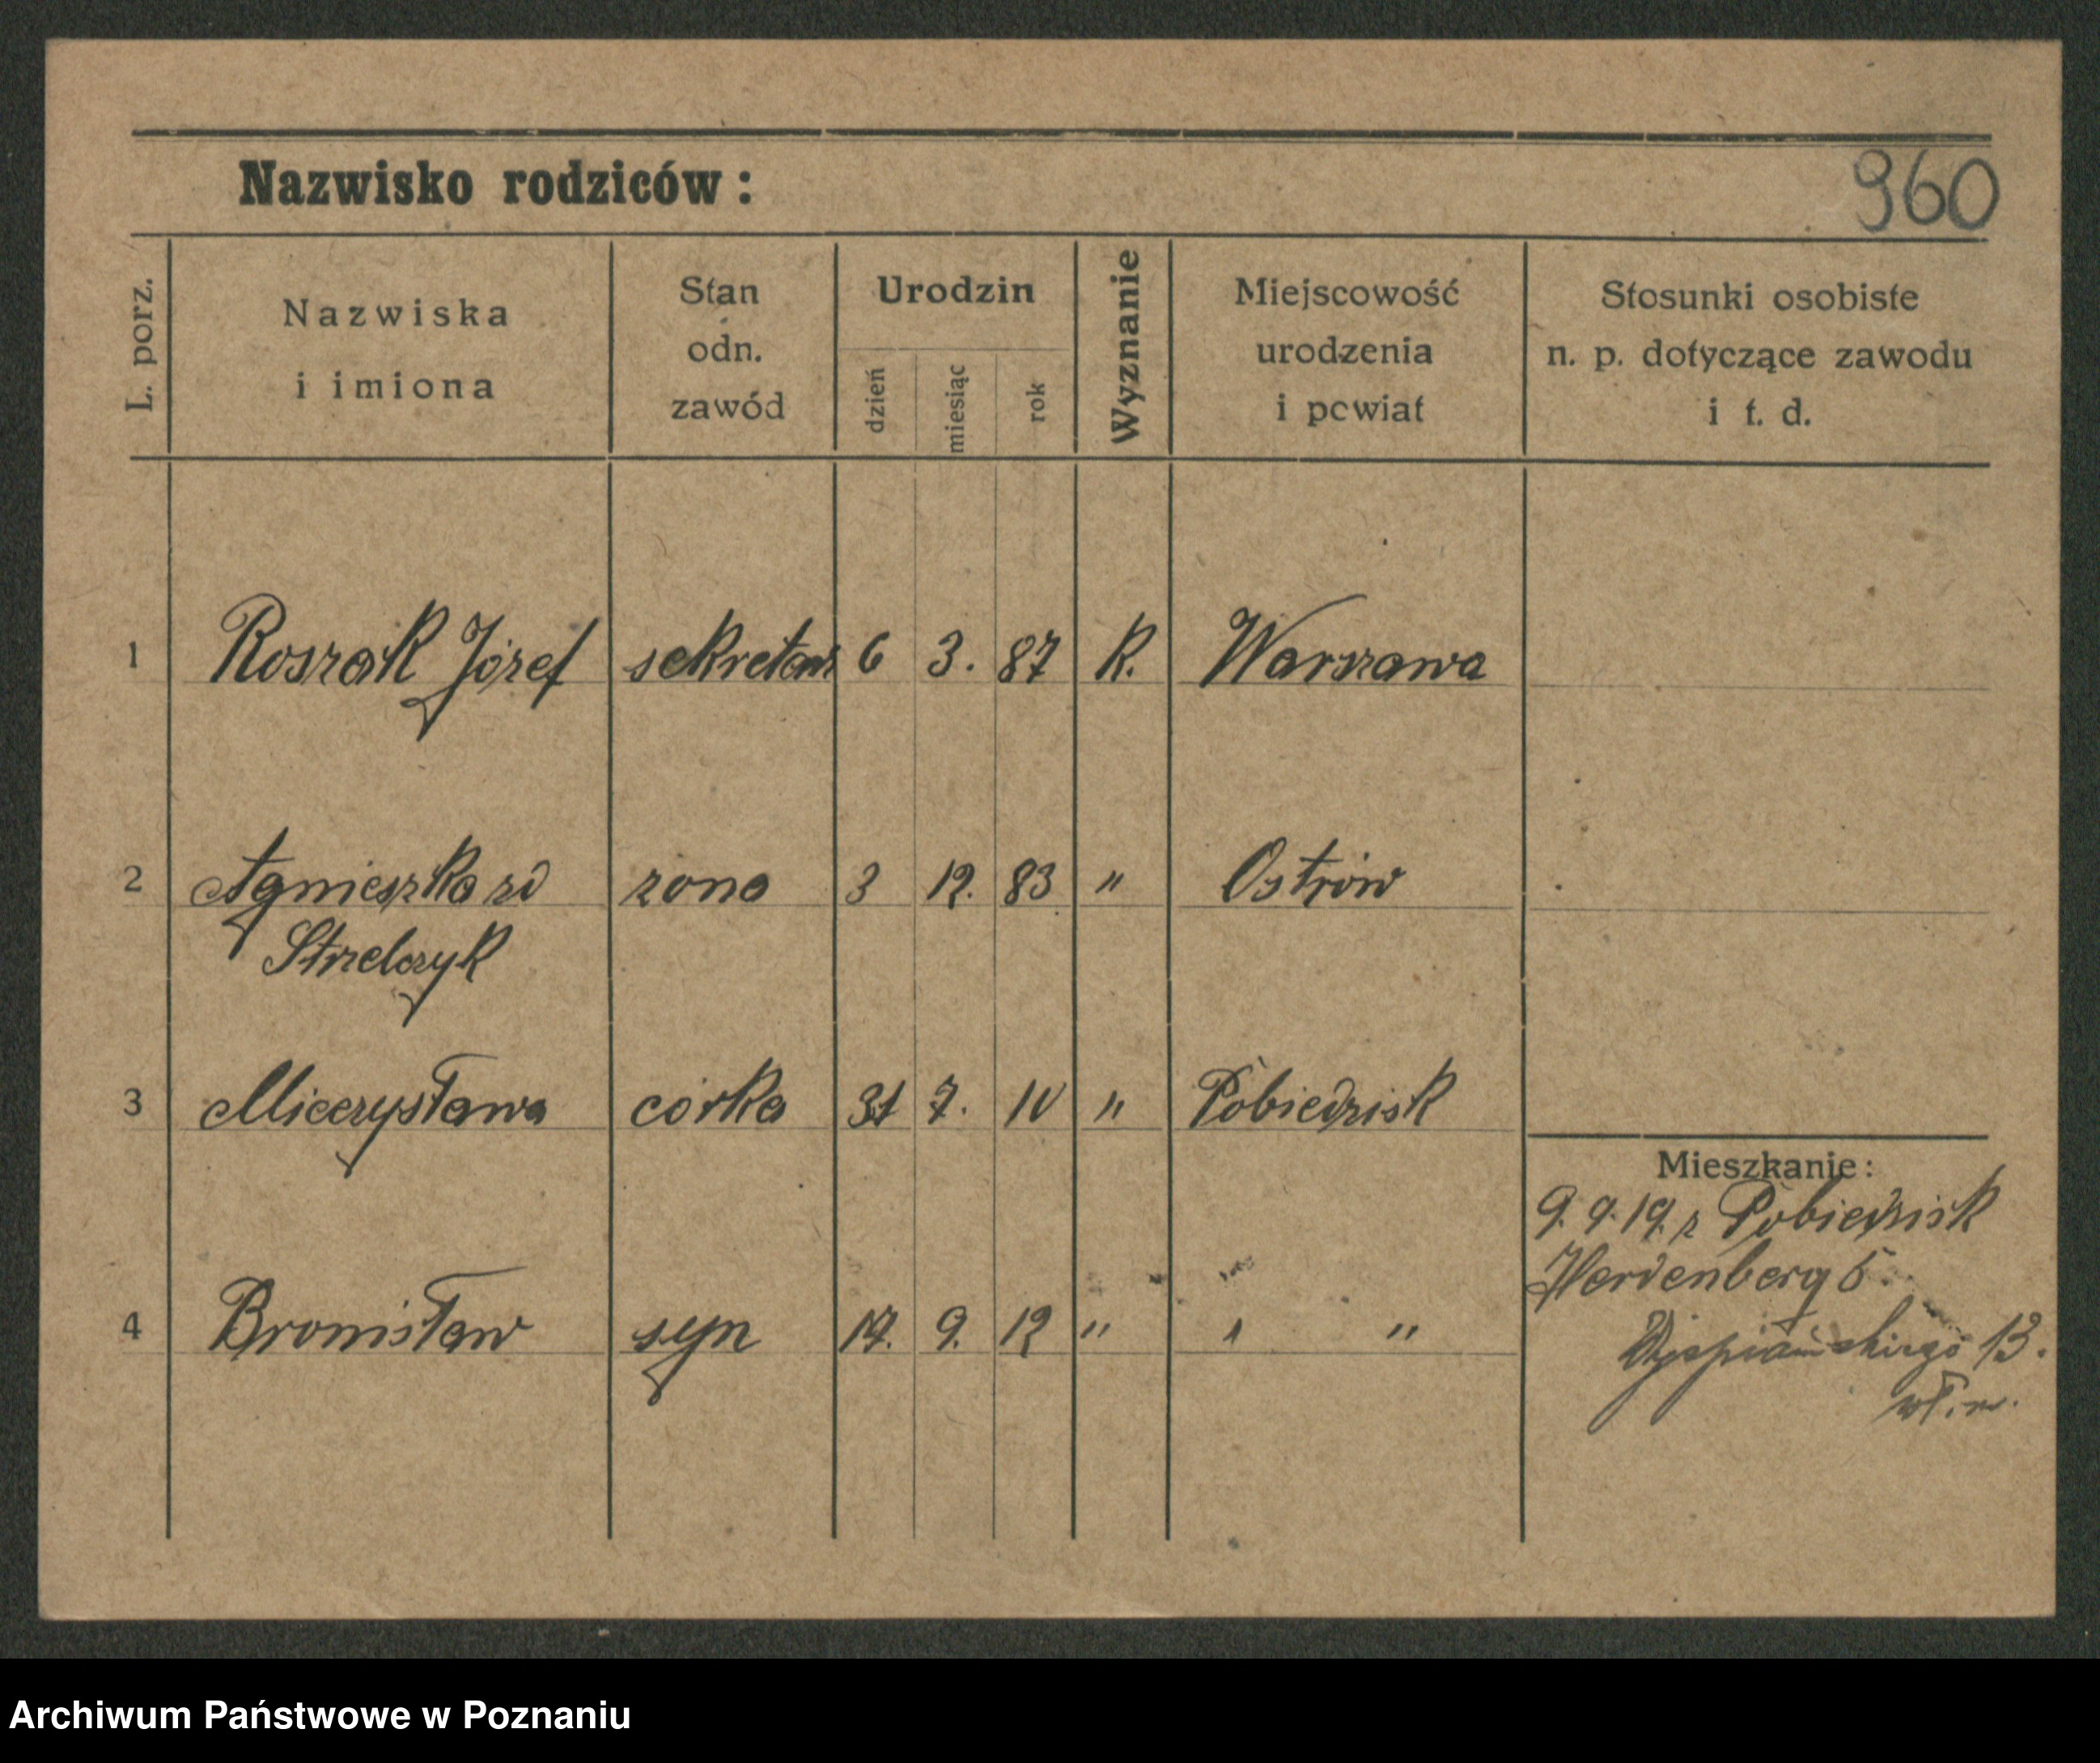 Nazwisko rodziców:
960
L. porz.
Nazwiska
i imiona
Stan
odn.
zawód
Urodzin
dzień
miesiąc
rok
Wyznanie
Miejscowość
urodzenia
i powiat
Stosunki osobiste
n. p. dotyczące zawodu
i t. d.
1 Roszak Józef sekretarz 6 3. 87 K. Warszawa
2 Agnieszka zd żona 3 12. 83 " Ostrów
Strzelczyk
3 Mieczysława córka 31 7. 10 " Pobiedzisk
Mieszkanie:
9. 9. 19. z Pobiedzisk
Herdenberg 5.
4 Bronisław syn 14. 9. 12 " " "
Wyspiańskiego 13.
Archiwum Państwowe w Poznaniu